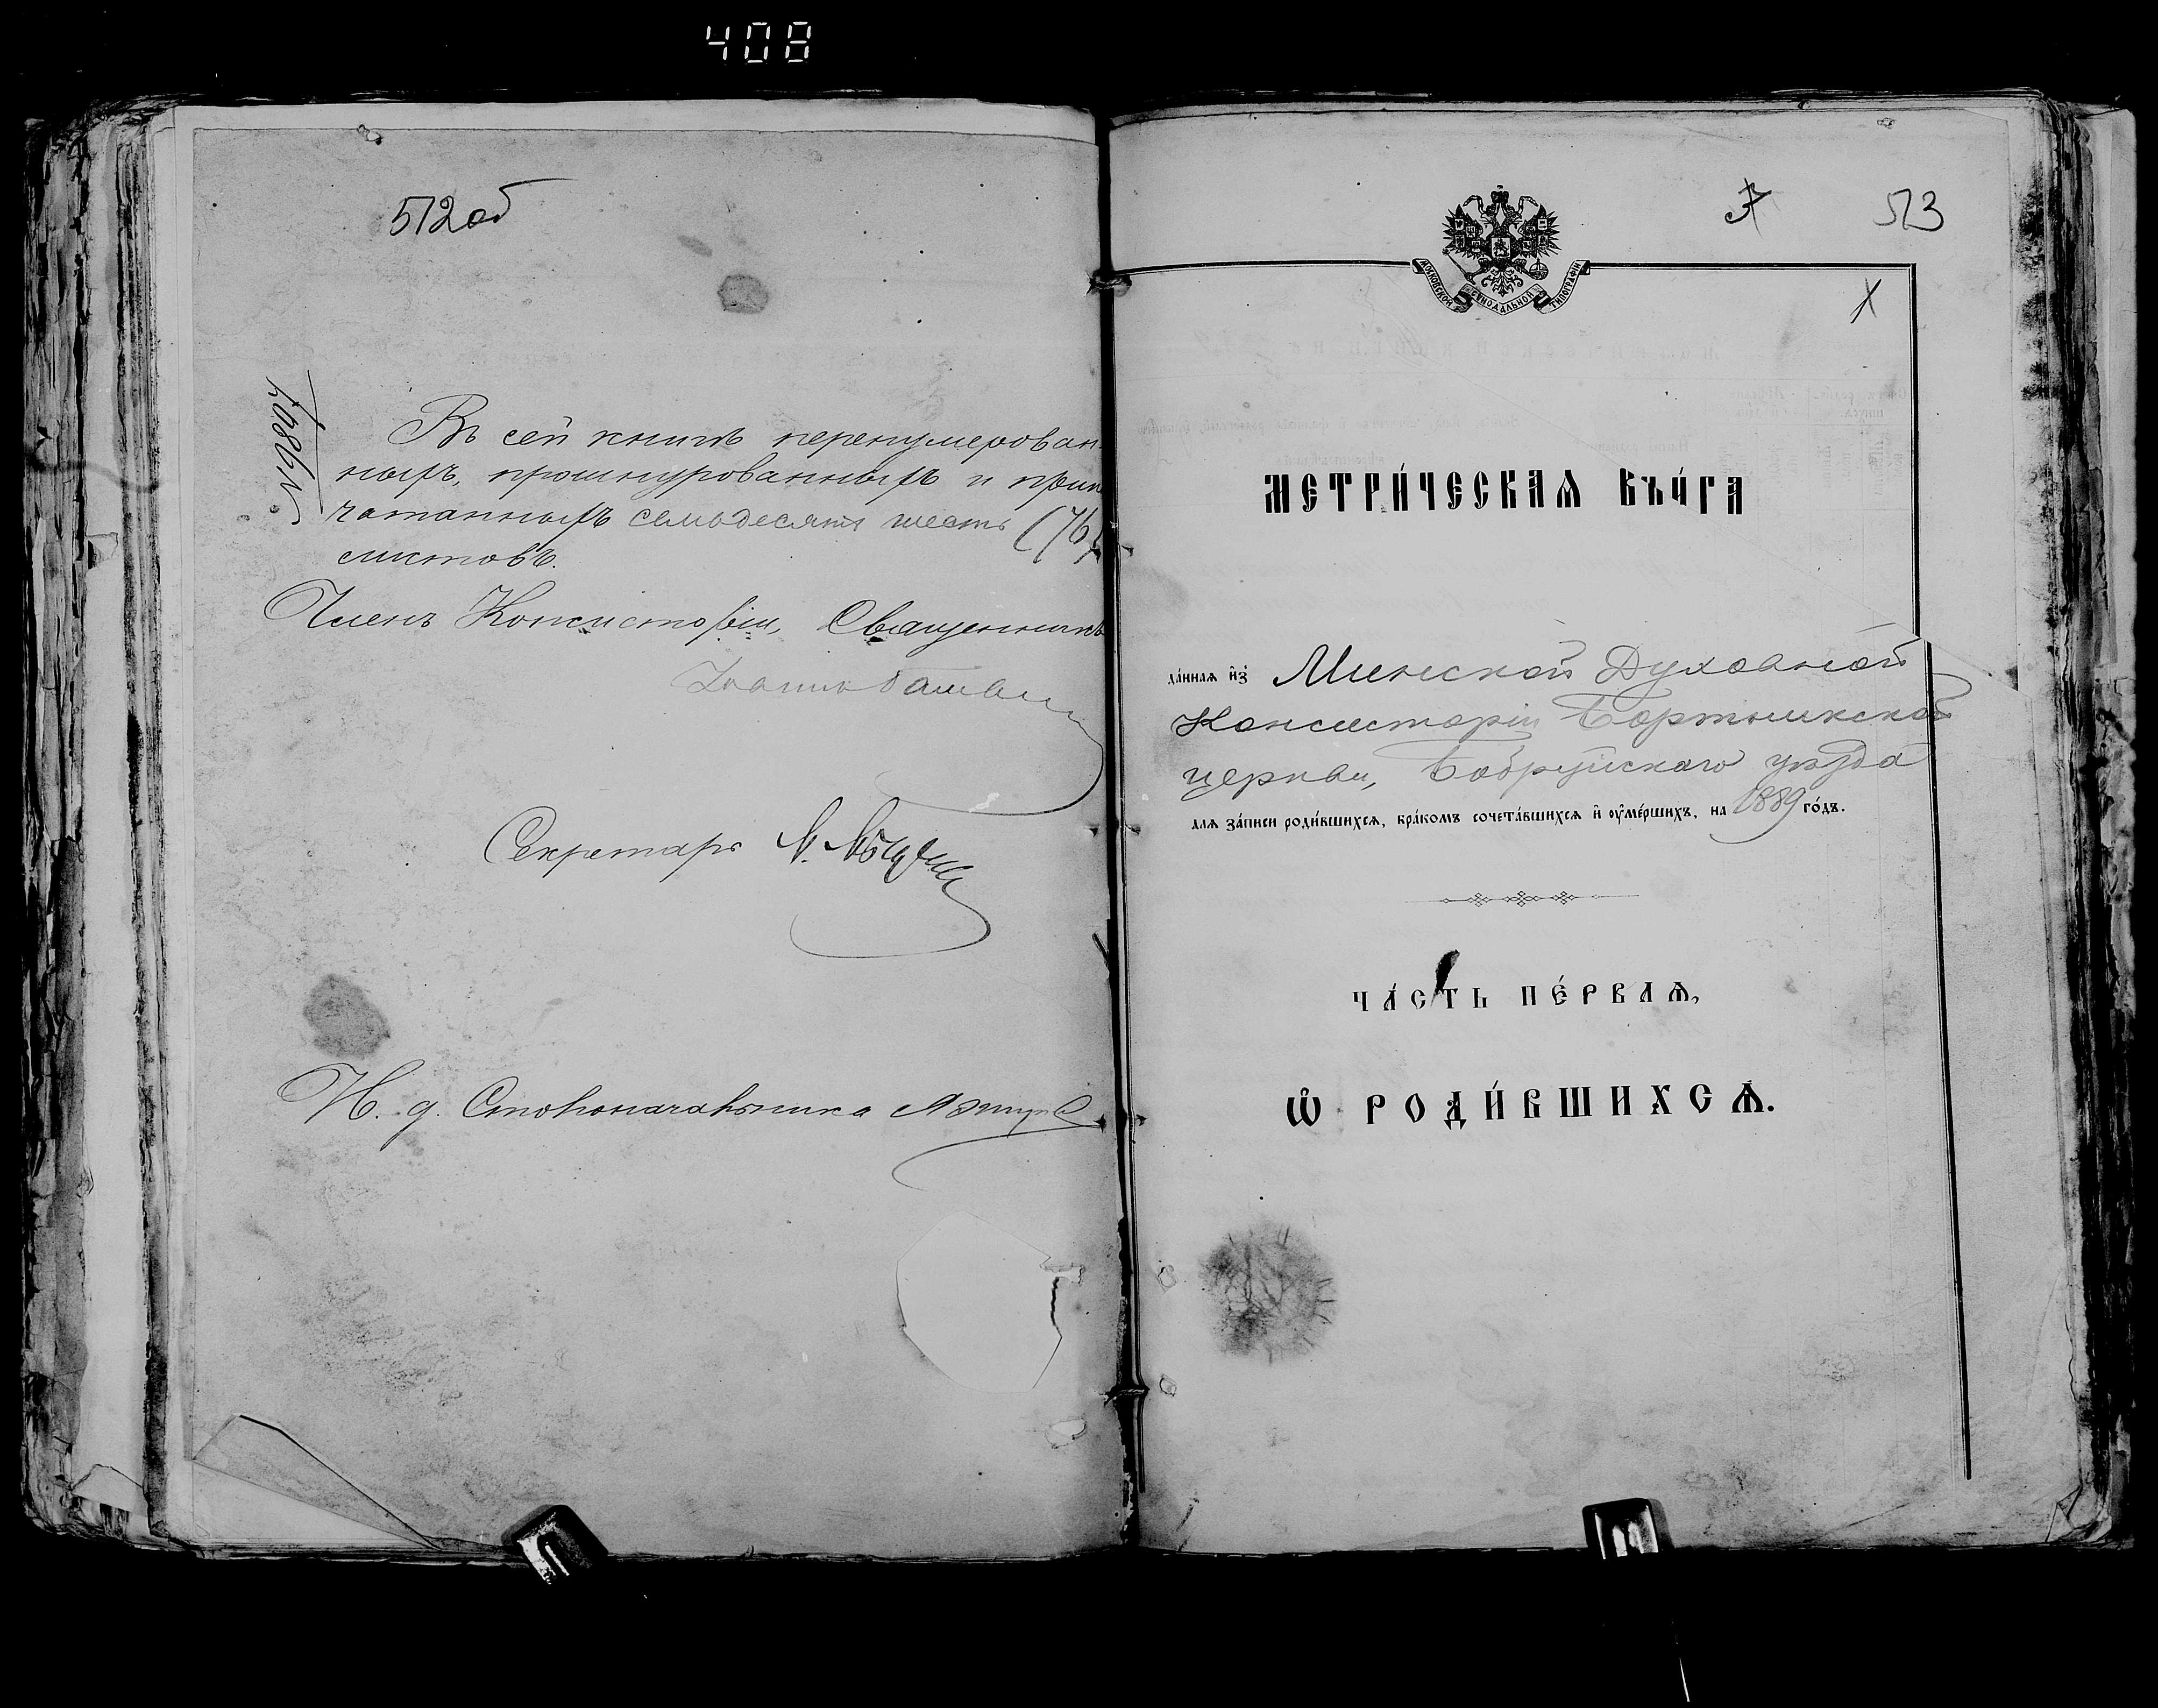 408
512об
№ 9804
Въ сей книгѣ перенумерован-
ныхъ, прошнурованныхъ и припе
чатанныхъ семьдесятъ шесть (76)
листовъ.
Членъ Консисторіи, Священникъ
Іоаннъ
Секретарь
И. д. Столоначальника
513
МОСКОВСКОЙ СѴНОДАЛЬНОЙ ТИПОГРАФІИ
МЕТРИ́ЧЕСКАѦ КНИ́ГА
да́ннаѧ и҆з̾ Минской Духовной
Консисторіи Бортникской
церкви, Бобруйскаго уѣзда
длѧ за́писи роди́вшихсѧ, бра́комъ сочета́вшихсѧ и҆ ᲂу҆ме́ршихъ, на 1889 го́дъ.
ЧА́СТЬ ПЕ́РВАѦ,
Ѡ҆ РОДИ́ВШИХСѦ.